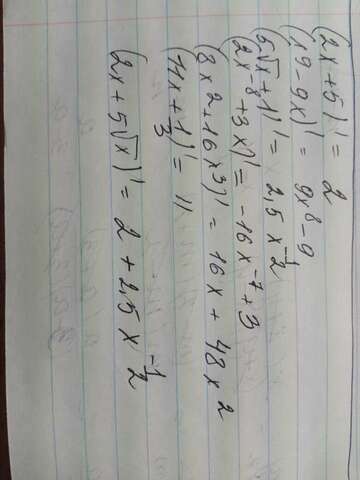 (2x + 5)' = 2
(x9 - 9x)' = 9x⁸ - 9
(5√x + 1)' = 2,5 x^-1/2
(2x⁻⁸ + 3x)' = -16x⁻⁷ + 3
(8x² + 16x³)' = 16x + 48x²
(11x + 1/3)' = 11
(2x + 5√x)' = 2 + 2,5 x^-1/2